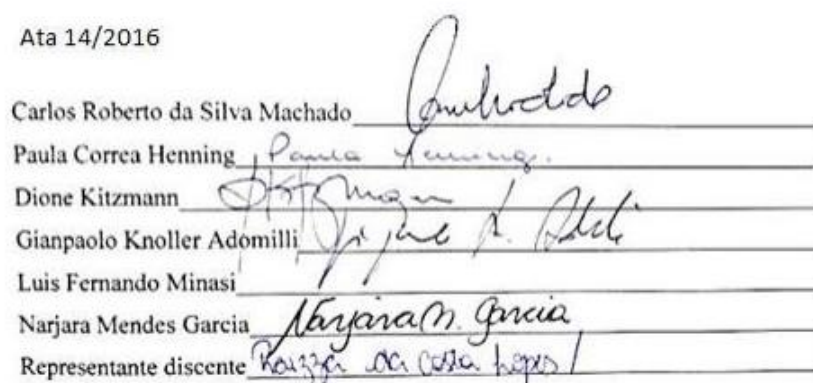 Ata 14/2016
Carlos Roberto da Silva Machado
Paula Correa Henning Paula Henning.
Dione Kitzmann DKitzmann
Gianpaolo Knoller Adomilli
Luis Fernando Minasi
Narjara Mendes Garcia Narjara M. Garcia
Representante discente da Costa Lopes